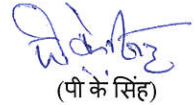 (पी के सिंह)